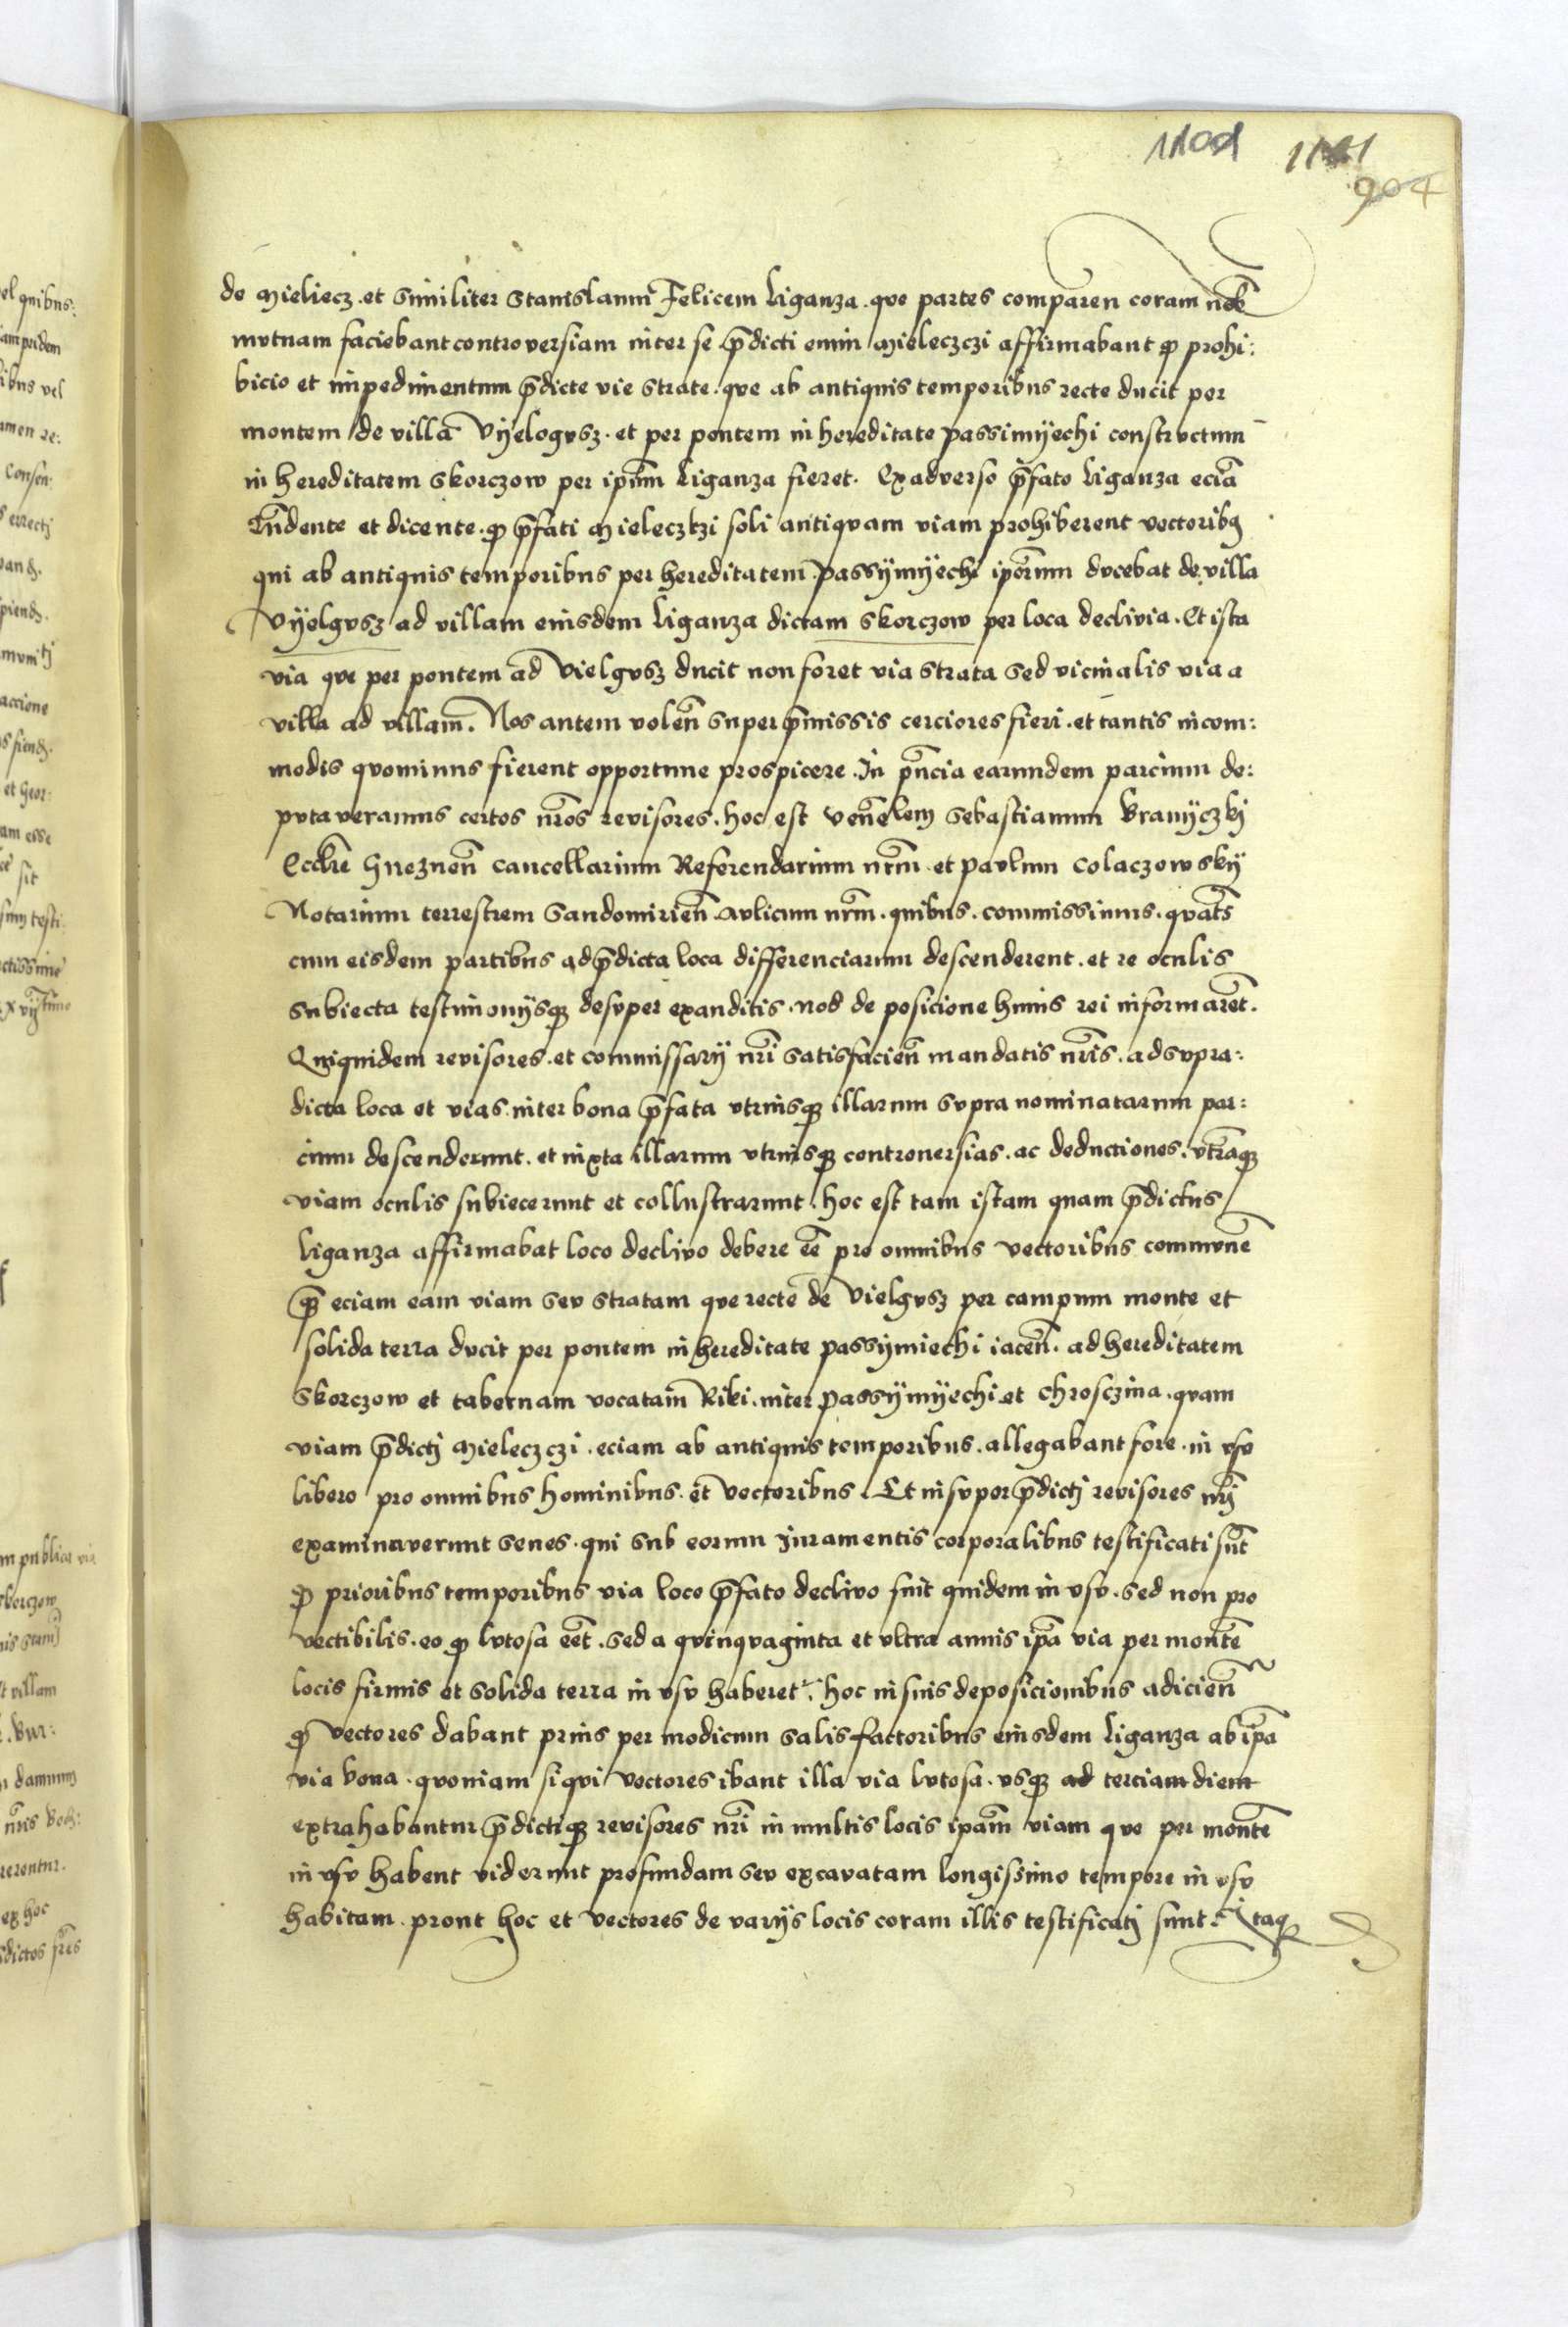 1101 1141
904
de Mieliecz. et similiter Stanislaum Felicem Liganza. que partes comparen coram nob
mutuam faciebant controversiam inter se p̄dicti enim Mieleczczi affirmabant q̄ prohi:
bicio et impedimentum p̄dicte vie strate. que ab antiquis temporibus recte ducit per
montem de villa Vÿelogvsz. et per pontem in hereditate passimÿechi constructum
in hereditatem Skorczow per ip̄um Liganza fieret. Ex adverso p̄fato Liganza eciā
dente et dicente. q̄ p̄fati Mieleczkzi soli antiquam viam prohiberent vectoribꝫ
qui ab antiquis temporibus per hereditatem passÿmÿechi ip̄orum ducebat de villa
Vÿelgvsz ad villam eiusdem Liganza dictam Skorczow per loca declivia. Et ista
via que per pontem ad Vielgvsz ducit non foret via strata sed vicinalis via a
villa ad villam. Nos autem volen̄ super p̄missis cerciores fieri. et tantis incom:
modis quominus fierent opportune prospicere. In p̄ncia earundem parcium de:
putaveramus certos nr̄os revisores. hoc est ven̄elem Sebastianum Branÿczkÿ
Eccl̄ie Gneznen̄ cancellarium Referendarium nr̄m et Paulum Colaczowskÿ
Notarium terrestrem Sandomirien̄ aulicum nr̄m. quibus. commissimus. quat̄s
cum eisdem partibus ad p̄dicta loca differenciarum descenderent. et re oculis
subiecta testimonÿsqꝫ desuper exauditis. nos de posicione huius rei informarēt.
Quiquidem revisores. et commissarÿ nr̄i satisfacien̄ mandatis nr̄is. ad supra:
dicta loca et vias. inter bona p̄fata utriusqꝫ illarum supra nominatarum par:
cium descenderunt. et iuxta illarum utriusqꝫ controuersias. ac deductiones. utrāqꝫ
viam oculis subiecerunt et collustrarunt. hoc est tam istam quam p̄dictus
Liganza affirmabat loco declivo debere ēē pro omnibus vectoribus communē
qꝫ eciam eam viam seu stratam que recte de Vielgvsz per campum monte et
solida terra ducit per pontem in hereditate passÿmiechi iacen̄. ad hereditatem
Skorczow et tabernam vocatam Riki. inter passÿmÿechi et Chrosczina. quam
viam p̄dictj Mieleczczi. eciam ab antiquis temporibus. allegabant fore. in usu
libero pro omnibus hominibus. et vectoribus. Et insuper p̄dictj revisores nr̄j
examinaverunt senes. qui sub eorum Juramentis corporalibus testificati sūt
q̄ prioribus temporibus via loco p̄fato declivo fuit quidem in usu. sed non pro
vectibilis. eo q̄ lutosa eēt. sed a quinquaginta et ultra annis ip̄a via per montē
locis firmis et solida terra in usu haberetr. hoc in suis deposicionibus adicien̄
q̄ vectores dabant prius per modicum salis factoribus eiusdem Liganza ab ip̄a
via bona. quoniam siqui vectores ibant illa via lutosa. usqꝫ ad terciam diem
extrahabantur p̄dictiqꝫ revisores nr̄i in multis locis ip̄am viam que per montē
in usu habent viderunt profundam seu excavatam longissimo tempore in usu
habitam. prout hoc et vectores de varÿs locis coram illis testificatj sunt. Itaqꝫ